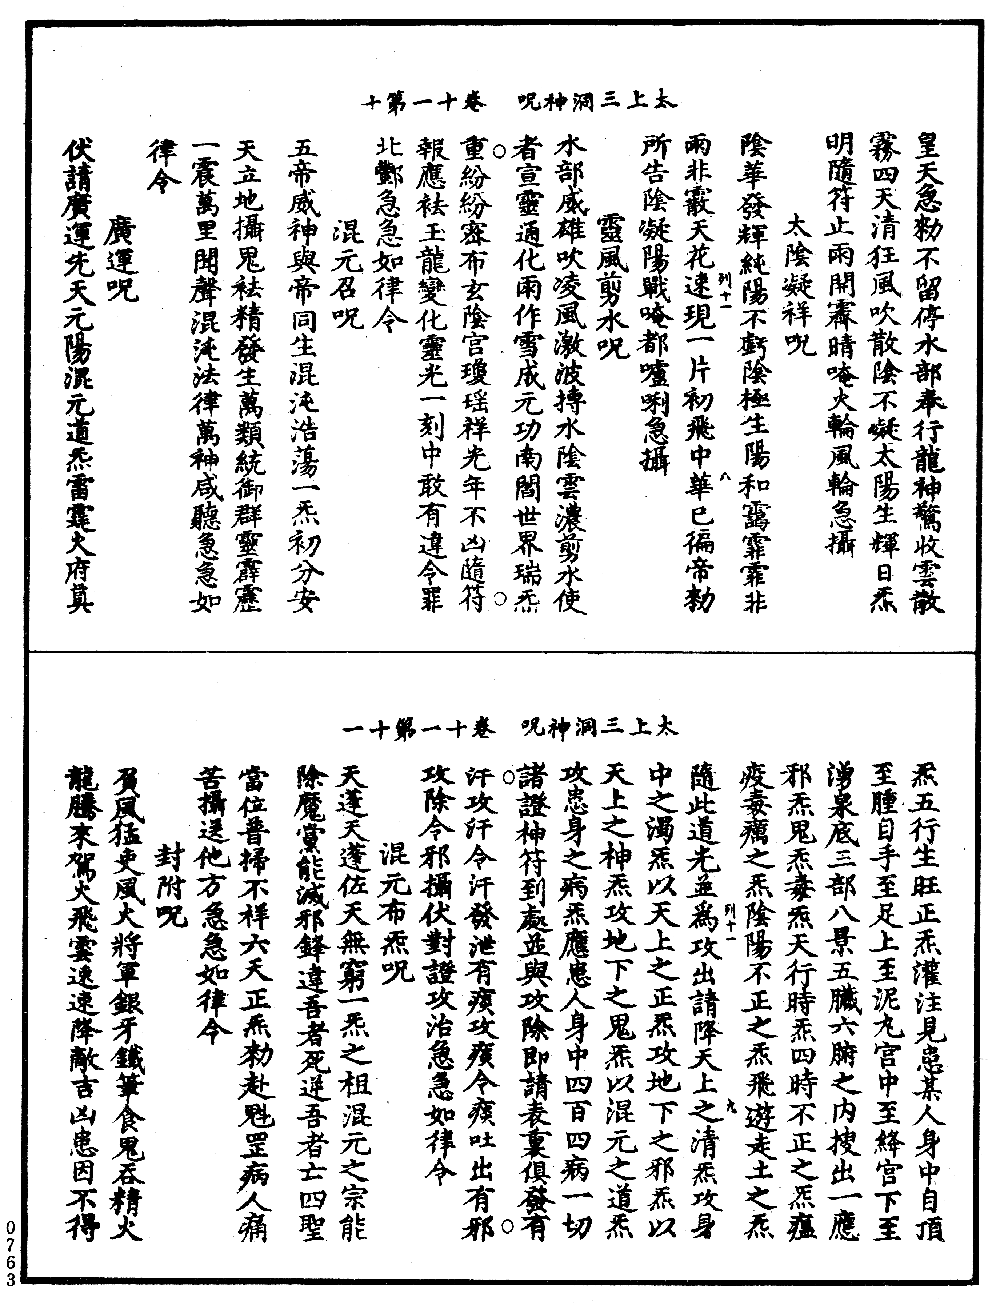 太上三洞神呪　卷十一第十
皇天急勑不留停水部奉行龍神驚收雲散
霧四天清狂風吹散陰不凝太陽生輝日炁
明隨符止雨開霽晴唵火輪風輪急攝
太陰凝祥呪
陰華發輝純陽不虧陰極生陽和靄霏霏非
雨非霰天花速現一片初飛中華已徧帝勑
所告陰凝陽戰唵都嚧唎急攝
靈風剪水呪
水部威雄吹凌風激波搏水陰雲濃剪水使
者宣靈通化雨作雪成元功南閻世界瑞炁
重紛紛密布玄陰宮瓊瑤祥光年不凶隨符
報應祛玉龍變化靈光一刻中敢有違令罪
北酆急急如律令
混元召呪
五帝威神與帝同生混沌浩蕩一炁初分安
天立地攝鬼祛精發生萬類統御群靈霹靂
一震萬里聞聲混沌法律萬神咸聽急急如
律令
廣運呪
伏請廣運先天元陽混元道炁雷霆火府真
列十一
八
太上三洞神呪　卷十一第十一
炁五行生旺正炁灌注見患某人身中自頂
至腫自手至足上至泥丸宮中至絳宮下至
湧泉底三部八景五臟六腑之内搜出一應
邪炁鬼炁毒炁天行時炁四時不正之炁瘟
疫毒癘之炁陰陽不正之炁飛遊走土之炁
隨此道光並爲攻出請降天上之清炁攻身
中之濁炁以天上之正炁攻地下之邪炁以
天上之神炁攻地下之鬼炁以混元之道炁
攻患身之病炁應患人身中四百四病一切
諸證神符到處並與攻除即請表裏俱發有
汗攻汗令汗發泄有㾱攻㾱令㾱吐出有邪
攻除令邪攝伏對證攻治急急如律令
混元布炁呪
天蓬天蓬佐天無窮第一炁之祖混元之宗能
除魔黨能滅邪鋒違吾者死逆吾者亡四聖
當位普掃不祥六天正炁勑赴魁罡病人痛
苦攝送他方急急如律令
封附呪
召風猛吏風火將軍銀牙鐵箠食鬼吞精火
龍騰來駕火飛雲速速降敵吉凶患因不得
列十一
九
0763